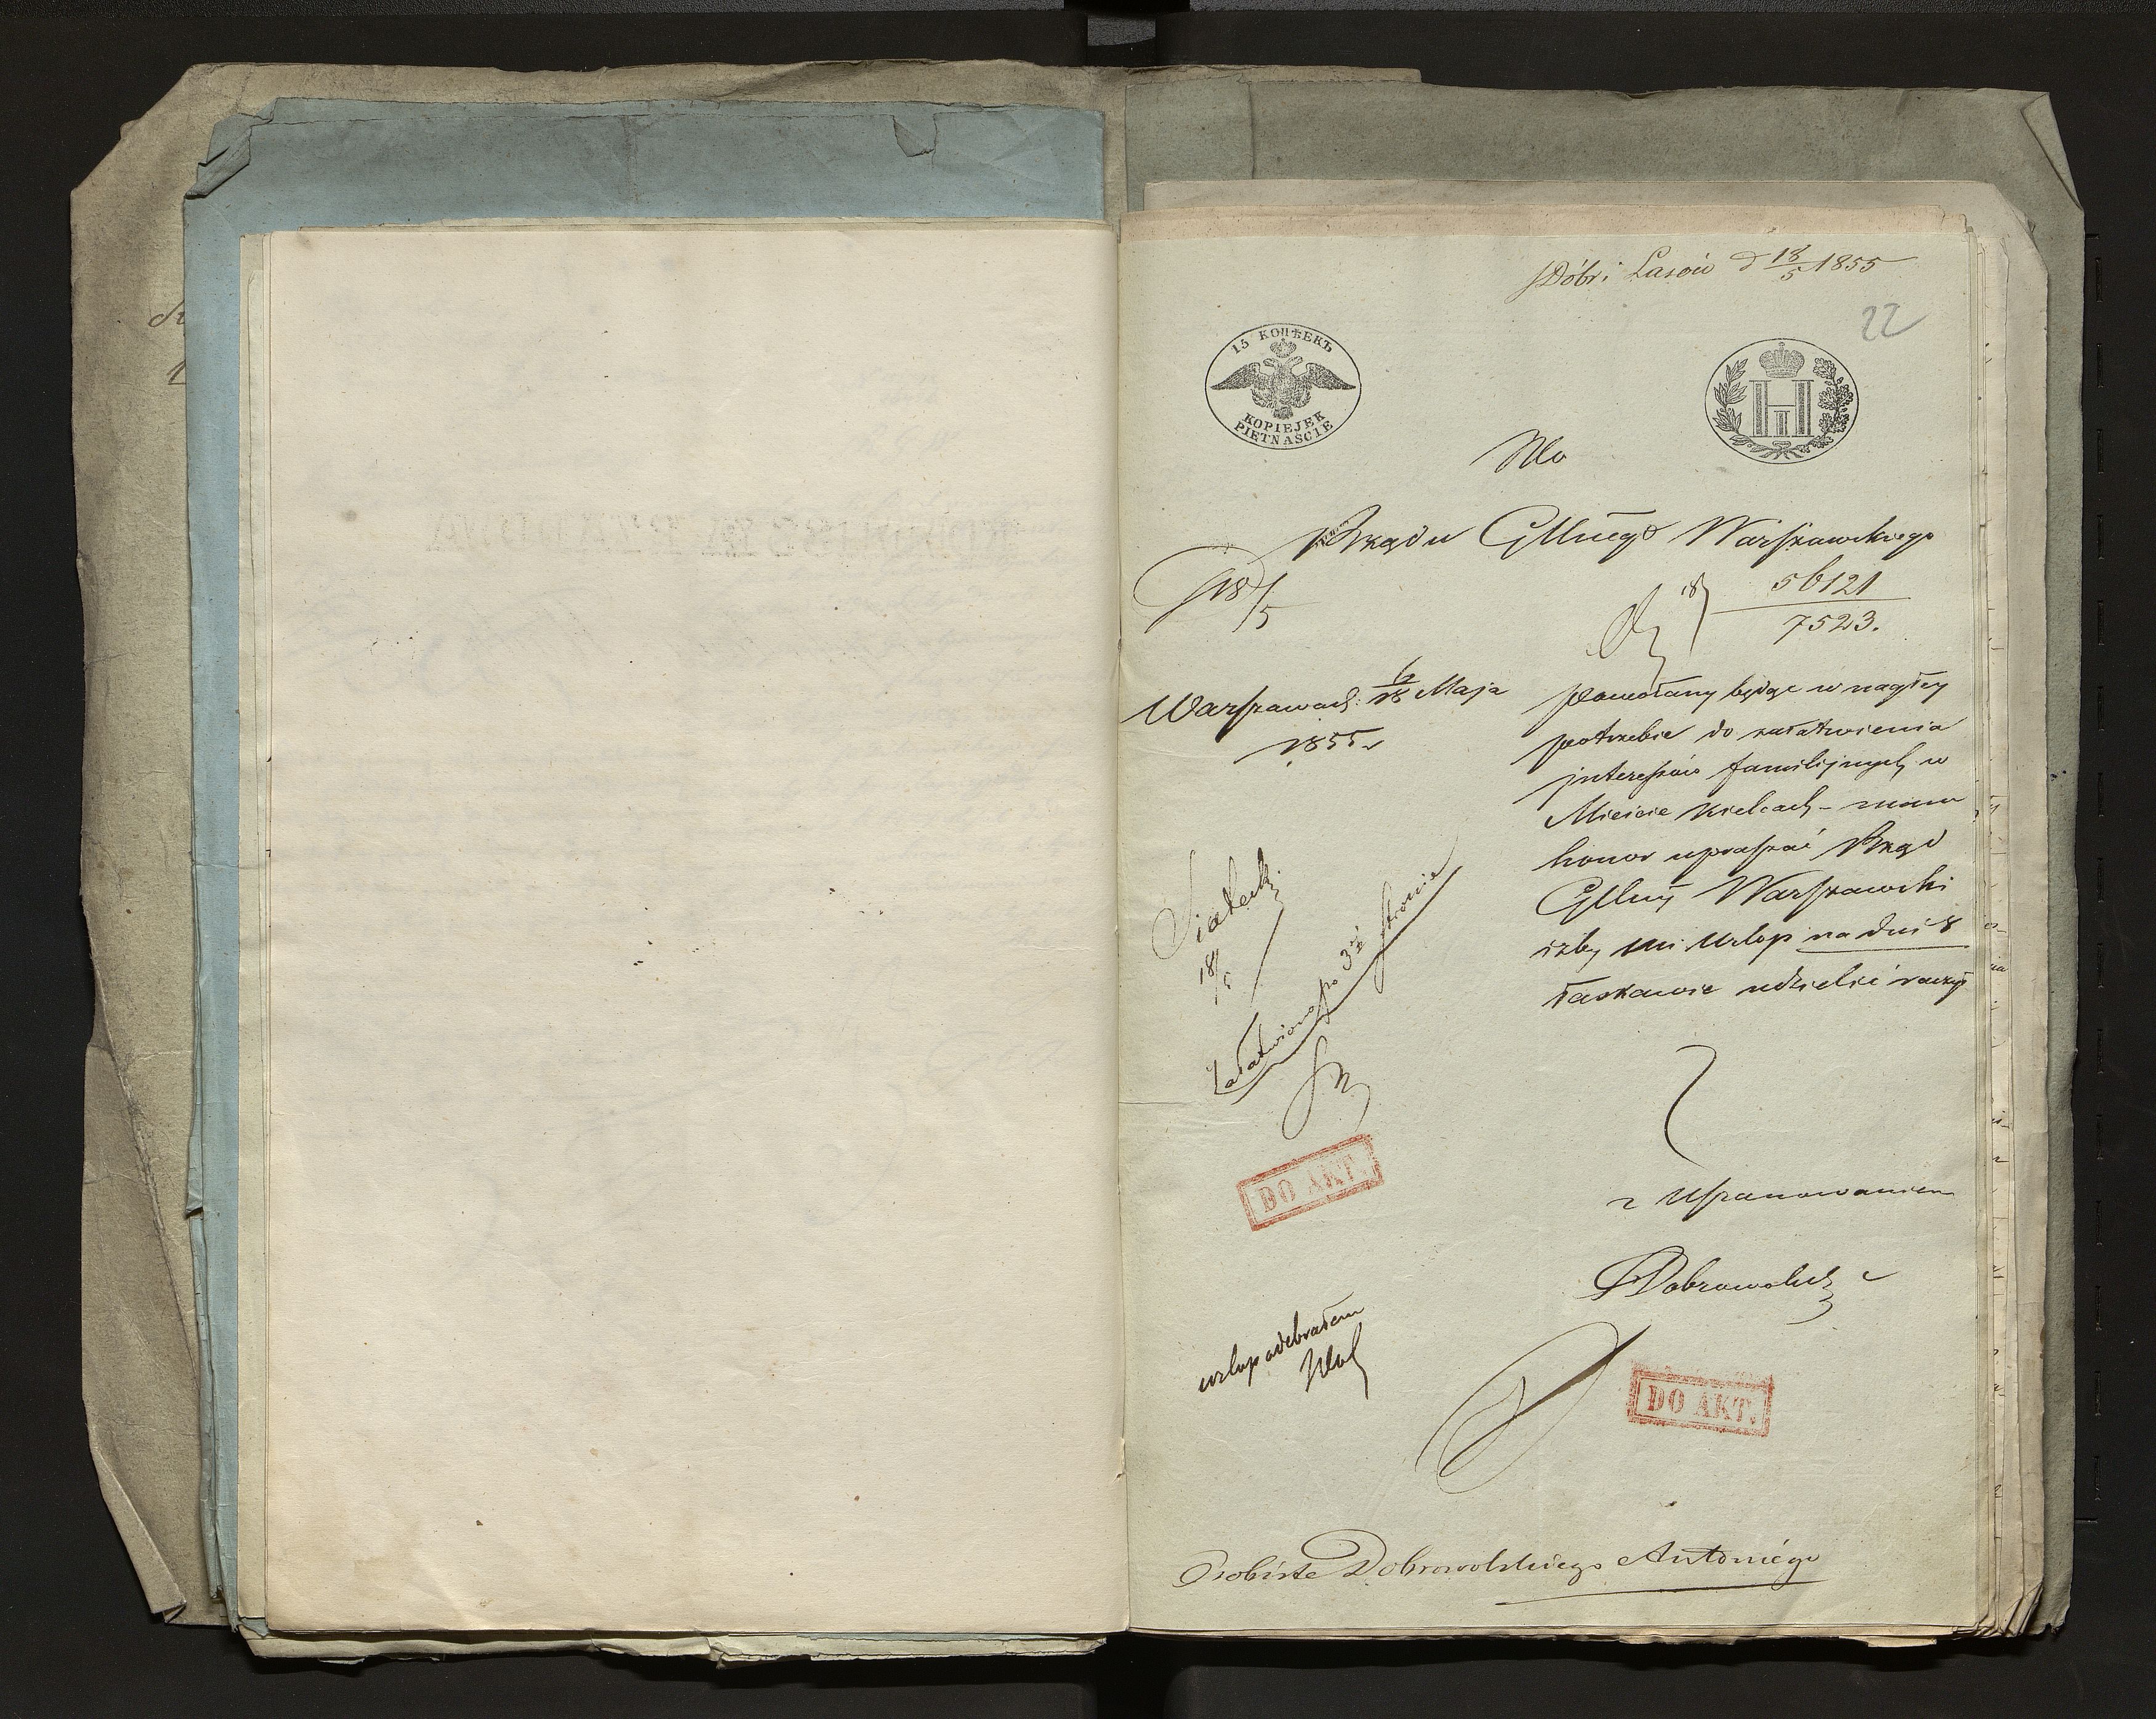 Dóbr i Lasów d 18/5 1855
22
15 КОПѢЕКЪ
KOPIEJEK
PIETNAŚCIE
Н III
Do
Rządu Gllnego Warszawskiego
18/5
56121
7523.
Warszawa d: 6/18 Maja
1855 r
powołany będąc w nagłey
potrzebie do załatwienia
interessów familijnych w
Mieście Kielcach – mam
honor upraszać Rząd
Gllny Warszawski
iżby mi Urlop na dni 8
łaskawie udzielić raczył
18/5
Załatwiono po stronie
DO AKT.
z Uszanowaniem
Dobrowolski
urlop odebrałem
DO AKT.
Osobiste Dobrowolskiego Antoniégo